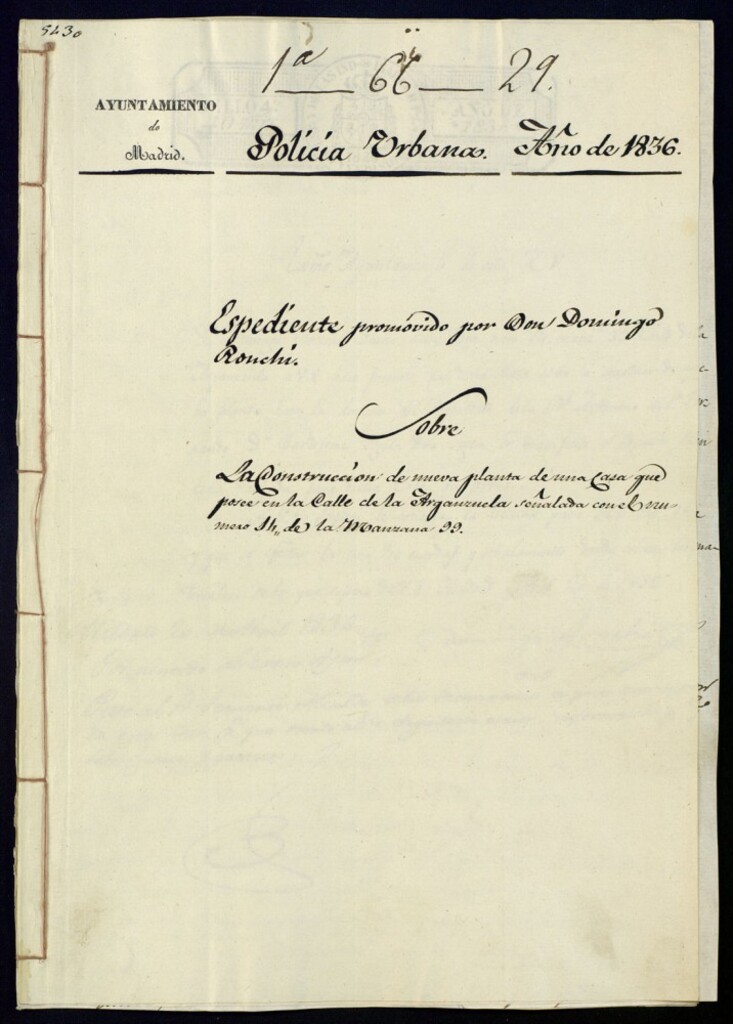 5430
1ª — 66 — 29.
AYUNTAMIENTO
de
Madrid.
Policía Urbana. Año de 1836.
Espediente promovido por Don Domingo
Ronchi.
Sobre
La Construccion de nueva planta de una Casa que
posee en la Calle de la Arganzuela señalada con el nu-
mero 14,, de la Manzana 99.